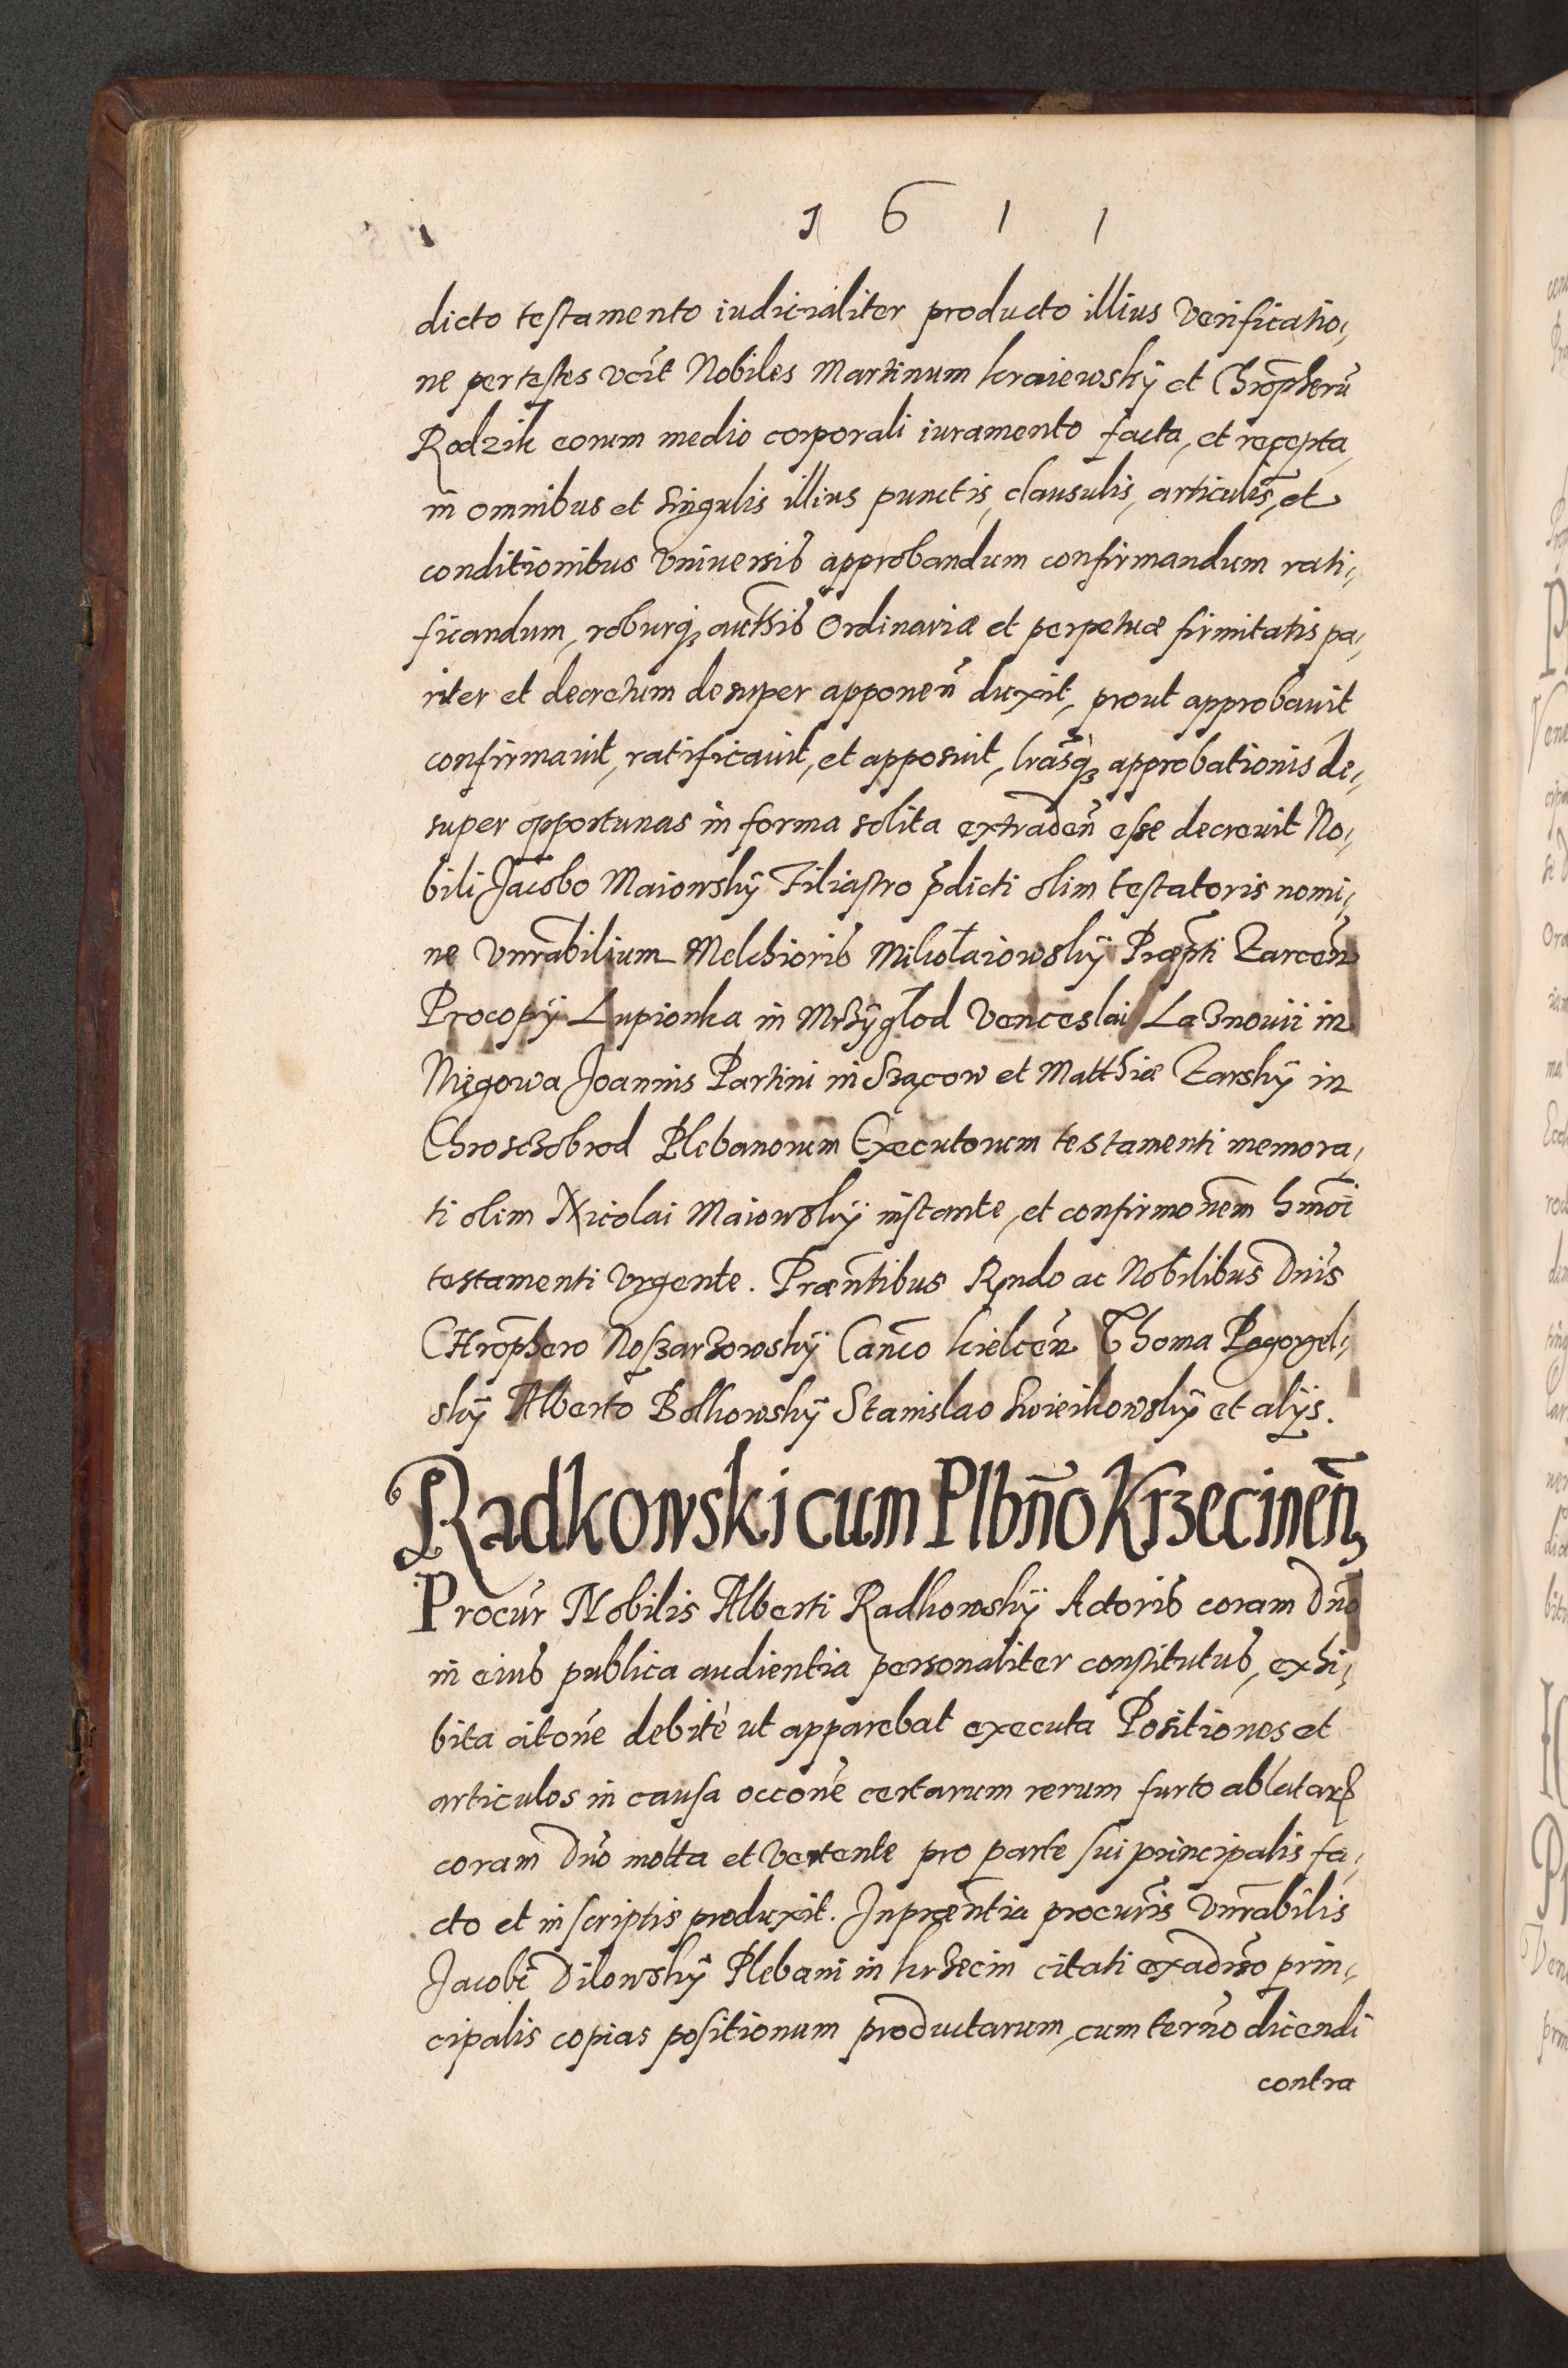 1 6 1 1
dicto testamento iudicialiter producto illius Verificatio,
ne per testes vc̃zt Nobiles Martinum kraiewskÿ et Chrõpherũ
Rodzik eorum medio corporali iuramento facta, et recepta,
in omnibus et singulis illius punctis, clausulis, articulis, et
conditionibus Vniuersis approbandum confirmandum rati,
ficandum, roburq́ꝫ aucth̃is Ordinariæ et perpetuæ firmitatis pa,
riter et decretum desuper apponeñ duxit, prout approbauit
confirmauit, ratificauit, et apposuit, lrãsq́ꝫ approbationis de,
super opportunas in forma solita extradeñ esse decreuit No,
bili Jacobo Maiowskÿ Filiastro p̃dicti olim testatoris nomi,
ne Vnrãbilium Melchioris Mikołaiowskÿ Præpti Zarceñ
Procopÿ Lupionka in Mrzÿgłod Venceslai Laznouii in
Niegowa Joannis Partini in Srącow et Matthiæ Zarskÿ in
Chroszczobrod Plebanorum Executorum testamenti memora,
ti olim Nicolai Maiowskÿ instante, et confirmoñem hmõi
testamenti Vrgente. Præñtibus Rñdo ac Nobilibus Dñis
CHrõphero Noszarzowskÿ Cañco kielceñ Thoma Pogorzel,
skÿ Alberto Bolkowskÿ Stanislao Swieikowskÿ et alÿs.
Radkowski cum Plbño Krzecineñ,
Procur̃ Nobilis Alberti Radkowskÿ Actoris coram Dño
in eius publica audientia personaliter constitutus, exhi,
bita citoñe debitè ut apparebat executa Positiones et
articulos in causa occoñe certarum rerum furto ablatarꝝ
coram Dño motta et Vertente pro parte sui principalis fa,
cto et in scriptis produxit. In præñtia procuris̃ Vnrãbilis
Jacobi Dilowskÿ Plebani in krzecin citati ex adũso prin,
cipalis copias positionum productarum, cum termño dicendi
contra